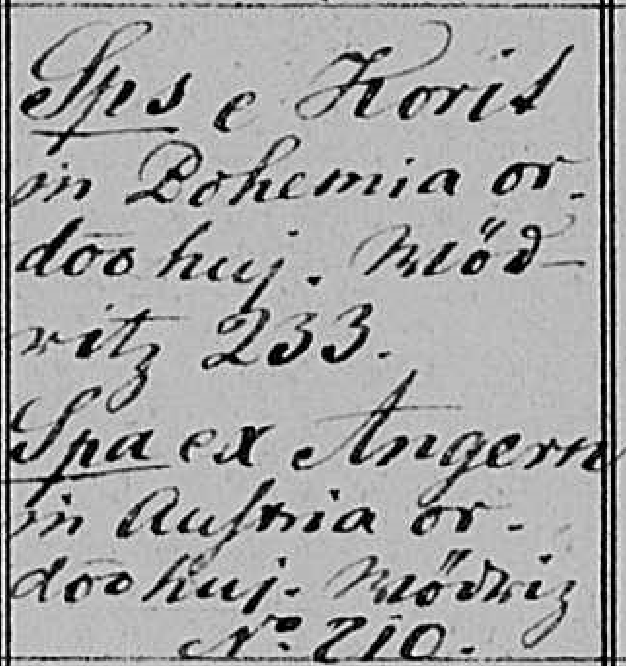 Sps e Korit
in Bohemia or.
dōo huj. Möd-
ritz 233.
Spa ex Angern
in Austria or.
dōo huj. Mödriz
No. 210.